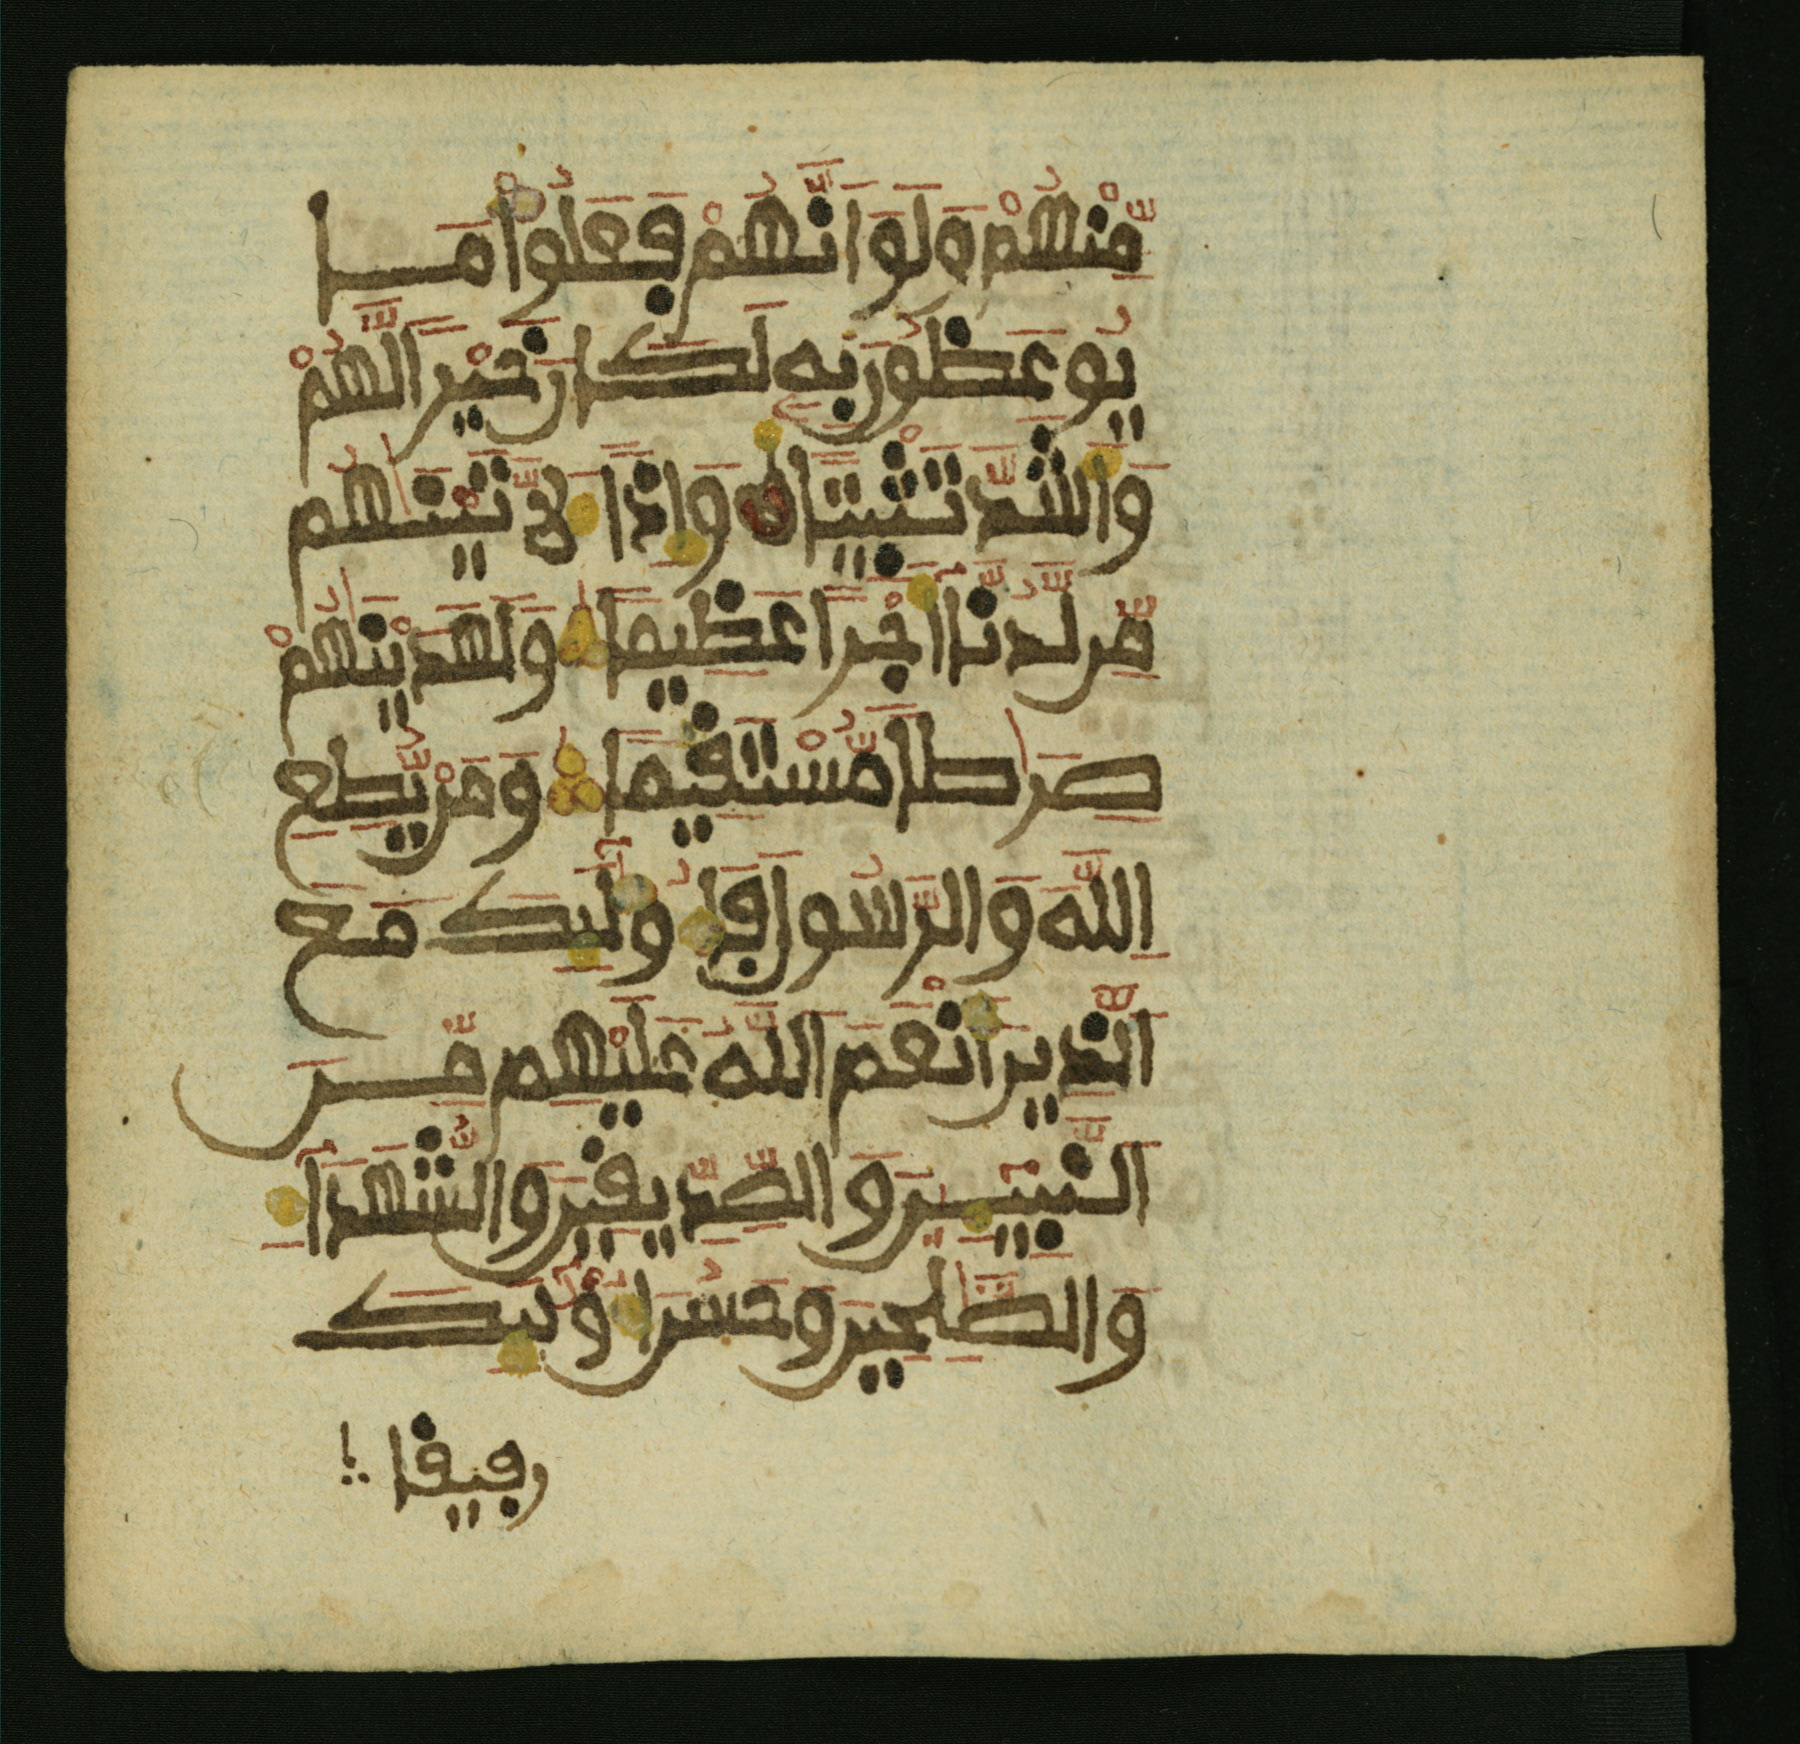 مِّنْهُمْ ه وَلَوَ اَنَّهُمْ فَعَلُواْ مَا
يُوعَظُونَ بِهِ لَكَانَ خَيْراً لَّهُمْ
وَأَشَدَّ تَثْبِيتاً ه وَإِذاً لَّأَتَيْنَٰهُم
مِّن لَّدُنَّآ أَجْراً عَظِيماً وَلَهَدَيْنَٰهُمْ
صِرَٰطاً مُّسْتَقِيماً وَمَنْ يُّطِعِ
اِللَّهَ وَالرَّسُولَ فَأُوْلَٰٓئِكَ مَعَ
اَلَّذِينَ أَنْعَمَ اَللَّهُ عَلَيْهِم مِّنَ
اَلنَّبِيٓـِٕينَ وَالصِّدِّيقِينَ وَالشُّهَدَآءِ
وَالصَّٰلِحِينَ وَحَسُنَ أُوْلَٰٓئِكَ
رفيقا